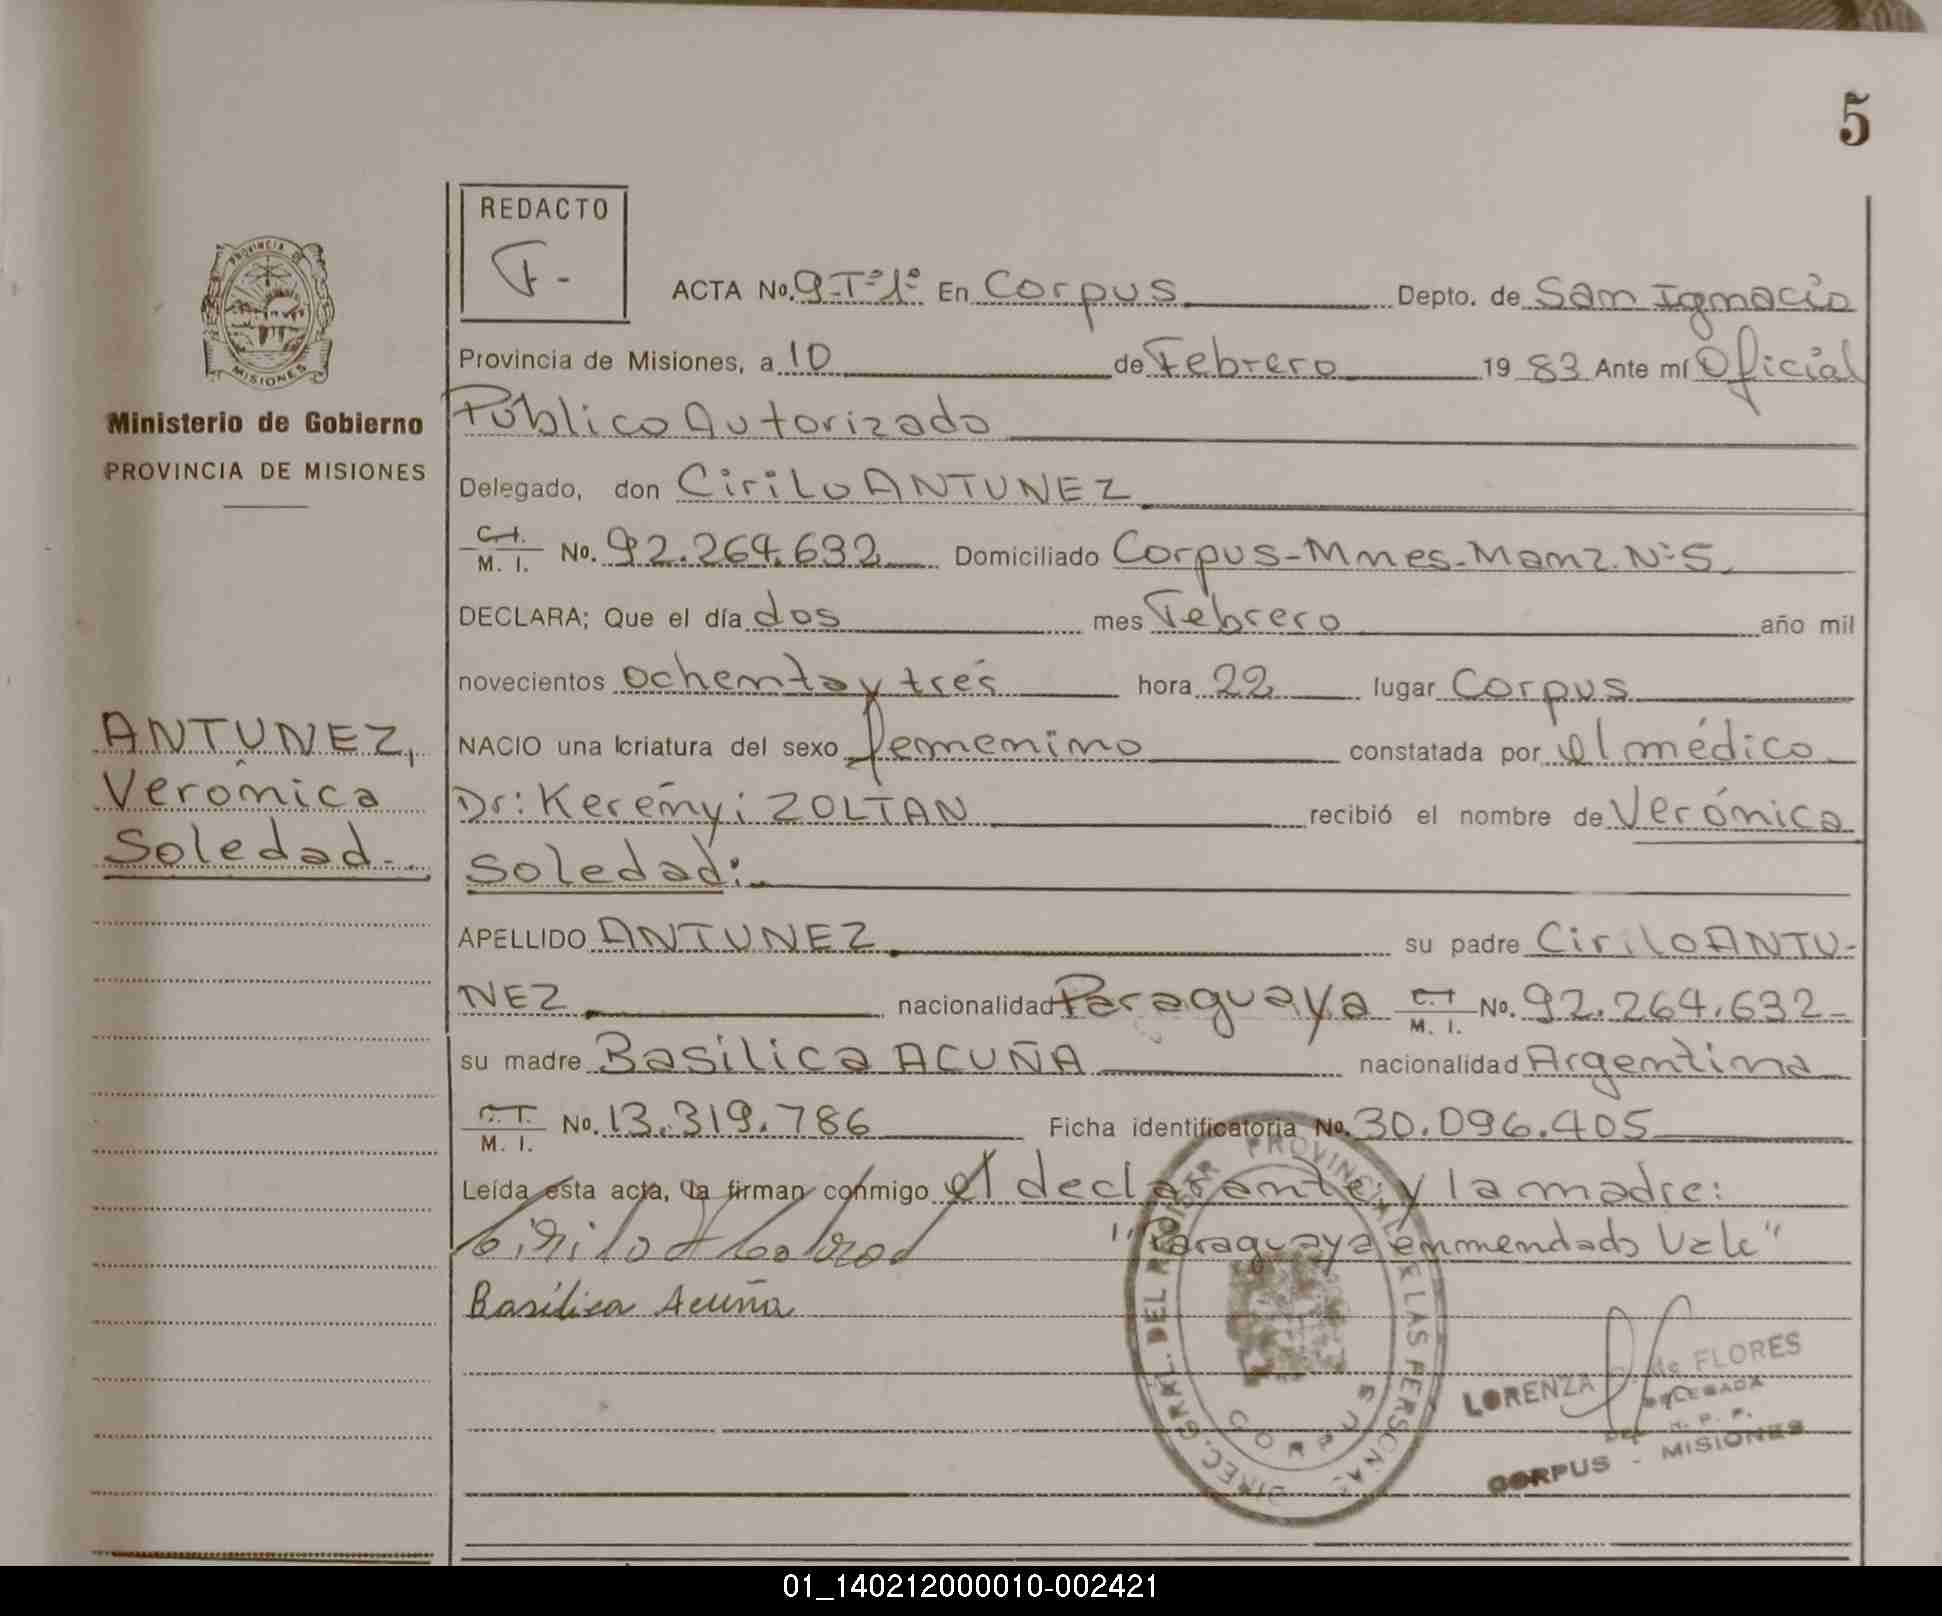 5
REDACTO
F.-
PROVINCIA DE
MISIONES
Ministerio de Gobierno
PROVINCIA DE MISIONES
ANTUNEZ,
Verónica
Soledad.-
ACTA No. 9-Tº1º En Corpus Depto. de San Ignacio
Provincia de Misiones, a 10 de Febrero 19 83 Ante mí Oficial
Público Autorizado
Delegado, don Cirilo ANTUNEZ
C.I.
M. I. No. 92.264.632 Domiciliado Corpus-Mnes-Manz. Nº5.
DECLARA; Que el día dos mes Febrero año mil
novecientos ochenta y tres hora 22 lugar Corpus
NACIO una criatura del sexo femenino constatada por el médico
Dr: Kerényi ZOLTAN recibió el nombre de Verónica
Soledad:
APELLIDO ANTUNEZ su padre Cirilo ANTU-
NEZ nacionalidad Paraguaya C.I. M. I. No. 92.264.632-
su madre Basílica ACUÑA nacionalidad Argentina
C.I.
M. I. No. 13.319.786 Ficha identificatoria No. 30.096.405
Leída esta acta, la firman conmigo el declarante y la madre:
"Paraguaya enmendado Vale"
Basílica Acuña
DIREC. GRAL. DEL REGISTER PROVINCIAL DE LAS PERSONAS
CORPUS
LORENZA de FLORES
DELEGADA
R. P. P.
CORPUS - MISIONES
01_140212000010-002421